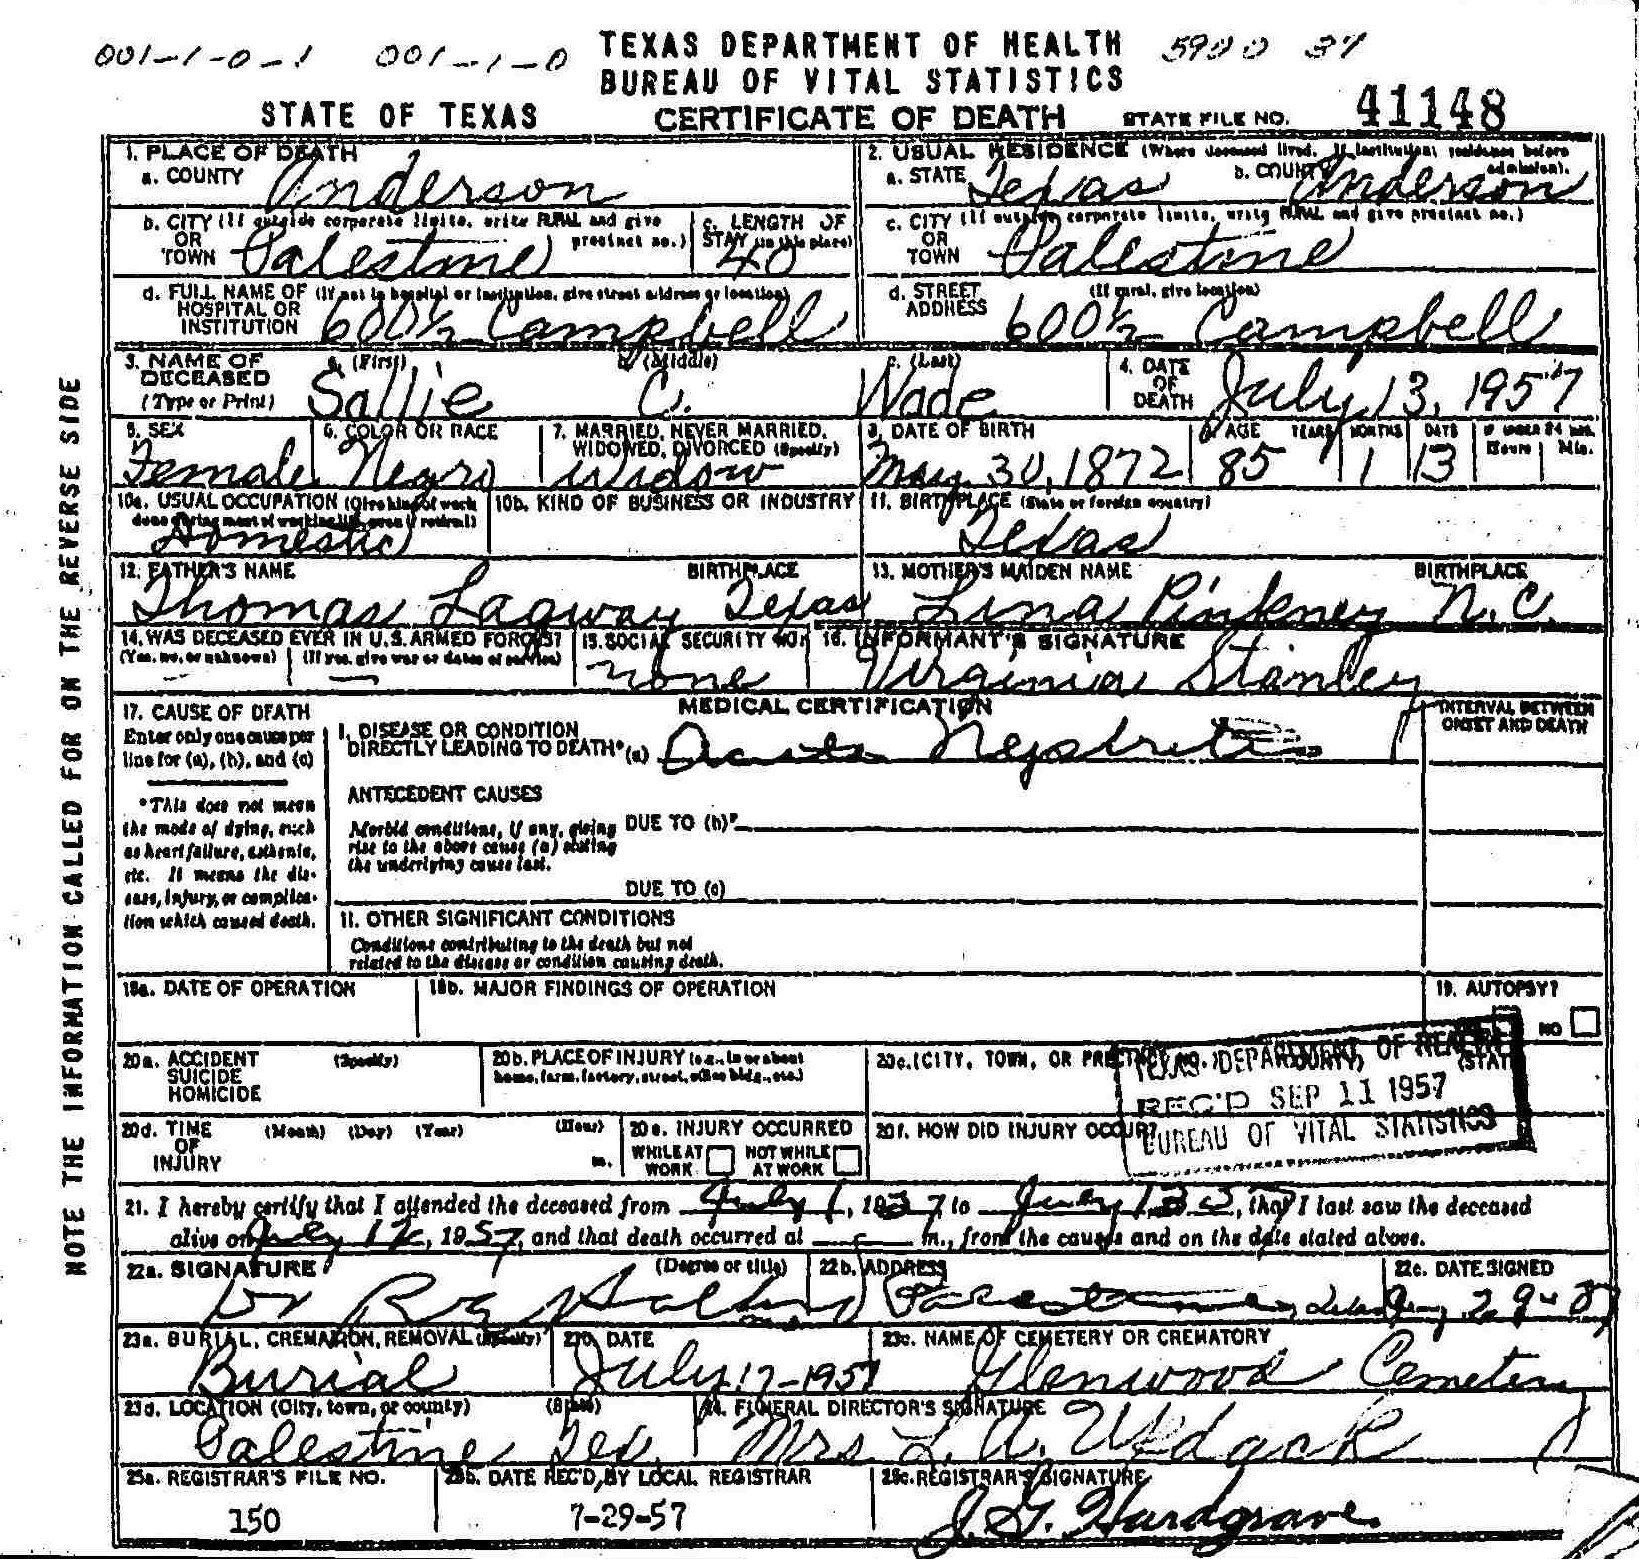 001-1-0-1 001-1-0 TEXAS DEPARTMENT OF HEALTH 5900 37
BUREAU OF VITAL STATISTICS
STATE OF TEXAS CERTIFICATE OF DEATH STATE FILE NO. 41148
1. PLACE OF DEATH
a. COUNTY Anderson
2. USUAL RESIDENCE (Where deceased lived. If institution: residence before admission).
a. STATE Texas b. COUNTY Anderson
b. CITY (If outside corporate limits, write RURAL and give precinct no.)
OR
TOWN Palestine
c. LENGTH OF
STAY (in this place)
40
c. CITY (If outside corporate limits, write RURAL and give precinct no.)
OR
TOWN Palestine
d. FULL NAME OF (If not in hospital or institution, give street address or location)
HOSPITAL OR
INSTITUTION 600½ Campbell
d. STREET (If rural, give location)
ADDRESS 600½ Campbell
3. NAME OF DECEASED (Type or Print)
a. (First) b. (Middle) c. (Last)
Sallie C. Wade
4. DATE OF DEATH
July 13, 1957
5. SEX
Female
6. COLOR OR RACE
Negro
7. MARRIED, NEVER MARRIED,
WIDOWED, DIVORCED (Specify)
Widow
8. DATE OF BIRTH
May 30, 1872
9. AGE YEARS MONTHS DAYS IF UNDER 24 HRS.
Hours Min.
85 1 13
10a. USUAL OCCUPATION (Give kind of work
done during most of working life, even if retired)
Domestic
10b. KIND OF BUSINESS OR INDUSTRY
11. BIRTHPLACE (State or foreign country)
Texas
12. FATHER'S NAME BIRTHPLACE
Thomas Lagway Texas
13. MOTHER'S MAIDEN NAME BIRTHPLACE
Lina Pinkney N.C.
14. WAS DECEASED EVER IN U.S. ARMED FORCES?
(Yes, no, or unknown) (If yes, give war or dates of service)
15. SOCIAL SECURITY NO.
none
16. INFORMANT'S SIGNATURE
Virginia Stanley
17. CAUSE OF DEATH
Enter only one cause per
line for (a), (b), and (c)
*This does not mean
the mode of dying, such
as heart failure, asthenia,
etc. It means the dis-
ease, injury, or complica-
tion which caused death.
MEDICAL CERTIFICATION
INTERVAL BETWEEN
ONSET AND DEATH
I. DISEASE OR CONDITION
DIRECTLY LEADING TO DEATH* (a) Acute Nephritis
ANTECEDENT CAUSES
Morbid conditions, if any, giving
rise to the above cause (a) stating
the underlying cause last.
DUE TO (b)
DUE TO (c)
11. OTHER SIGNIFICANT CONDITIONS
Conditions contributing to the death but not
related to the disease or condition causing death.
18a. DATE OF OPERATION
18b. MAJOR FINDINGS OF OPERATION
19. AUTOPSY?
NO
20a. ACCIDENT (Specify)
SUICIDE
HOMICIDE
20b. PLACE OF INJURY (e.g., in or about
home, farm, factory, street, office bldg., etc.)
20c. (CITY, TOWN, OR PRECINCT NO.) (COUNTY) (STATE)
TEXAS DEPARTMENT OF HEALTH
REC'D SEP 11 1957
BUREAU OF VITAL STATISTICS
20d. TIME (Month) (Day) (Year) (Hour)
OF
INJURY m.
20e. INJURY OCCURRED
WHILE AT WORK NOT WHILE AT WORK
20f. HOW DID INJURY OCCUR?
21. I hereby certify that I attended the deceased from July 1, 1957 to July 13 57, that I last saw the deceased
alive on July 12, 1957, and that death occurred at m., from the causes and on the date stated above.
22a. SIGNATURE (Degree or title)
Dr
22b. ADDRESS
Palestine,
22c. DATE SIGNED
29-57
23a. BURIAL, CREMATION, REMOVAL (Specify)
Burial
23b. DATE
July 17-1957
23c. NAME OF CEMETERY OR CREMATORY
Glenwood Cemetery
23d. LOCATION (City, town, or county) (State)
Palestine Tex.
24. FUNERAL DIRECTOR'S SIGNATURE
Mrs L. A.
25a. REGISTRAR'S FILE NO.
150
25b. DATE REC'D BY LOCAL REGISTRAR
7-29-57
25c. REGISTRAR'S SIGNATURE
J. G. Hardgrave
NOTE THE INFORMATION CALLED FOR ON THE REVERSE SIDE